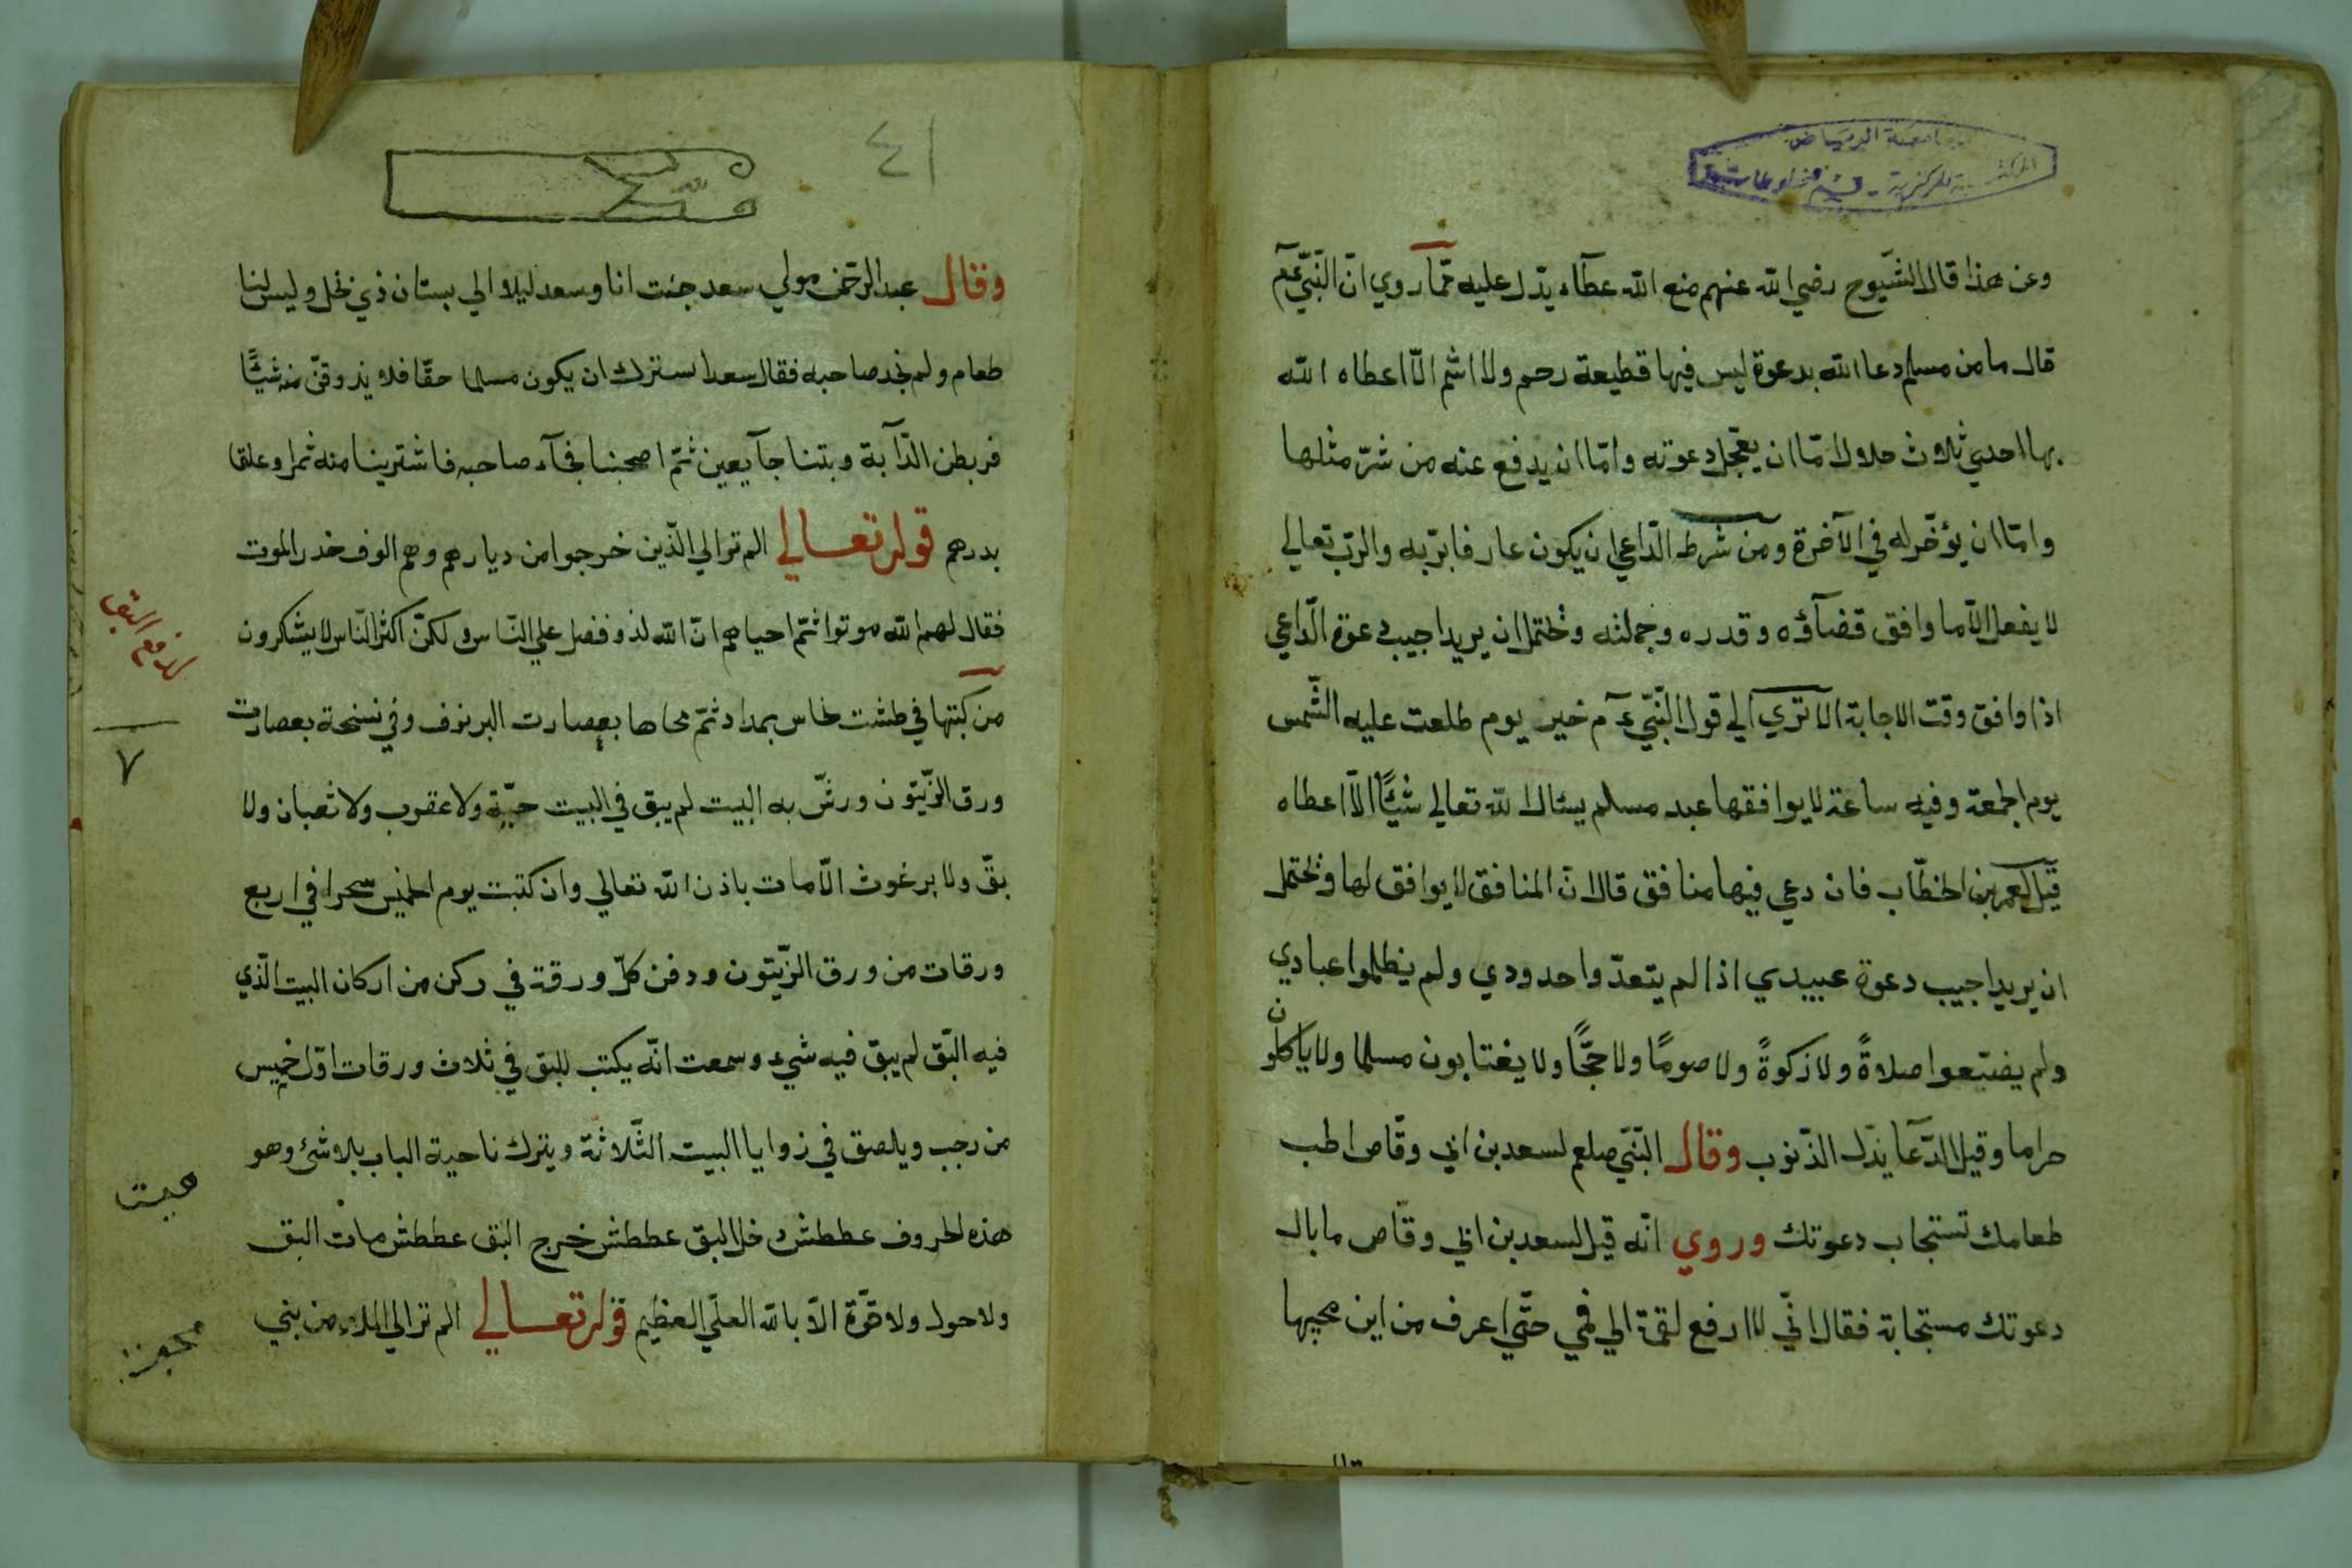 جامعة الرياض
المكتبة المركزية - قسم المخطوطات
وعن هذا قال الشيوح رضي الله عنهم منع الله عطآء يدّل عليه ممّا روي انّ النّبيّ عم
قال ما من مسلم دعا الله بدعوة ليس فيها قطيعة رحم ولا اثم الّا اعطاه الله
بها احدي ثلاث حلالا امّا ان يعجل دعوته وامّا ان يدفع عنه من شرّ مثلها
وامّا ان يؤخّر له في الآخرة ومن شرط الدّاعي ان يكون عارفا بربّه والربّ تعالي
لا يفعل الّا ما وافق قضآؤه وقدره وجملته ويحتمل ان يريد اجيب دعوة الدّاعي
اذا وافق وقت الاجابة الا تري الي قول النّبيّ عم خير يوم طلعت عليه الشّمس
يوم الجمعة وفيه ساعة لا يوافقها عبد مسلم يسئال الله تعالي شئًا الّا اعطاه
قيل لعمر بن الخطّاب فان دعي فيها منافق قال انّ المنافق لا يوافق لها ويحتمل
ان يريد اجيب دعوة عبيدي اذا لم يتعدّوا حدودي ولم يظلموا عبادي
ولم يضيّعوا صلاةً ولا زكوةً ولا صومًا ولا حجًّا ولا يغتابون مسلما ولا ياكلون
حراما وقيل الدّعآ يذّل الذّنوب وقال النّبيّ صلعم لسعد بن ابي وقّاص اطب
طعامك تستجاب دعوتك وروي انّه قيل لسعد بن ابي وقّاص ما بال
دعوتك مستجابة فقال انّي لا ارفع لقمة الي فمي حتّي اعرف من اين مجيها
٤١
وقال عبد الرّحمن مولي سعد جئت انا وسعد ليلا الي بستان ذي نخل وليس لنا
طعام ولم نجد صاحبه فقال سعد استرك ان يكون مسلما حقّا فلا يذوقنّ منه شئًا
فربطن الدّآبة وبتنا جآيعين ثمّ اصحبنا فجآء صاحبه فاشترينا منه ثمرا وعلفا
بدرهم قوله تعالي الم تر الي الّذين خرجوا من ديارهم وهم الوف حذر الموت
فقال لهم الله موتوا ثمّ احياهم انّ الله لذو فضل علي النّاس ولكنّ اكثر النّاس لا يشكرون
من كتبها في طشت نحاس بمداد ثمّ محاها بعصارت البرنوف وفي نسخة بعصارت
ورق الزّيتون ورشّ به البيت لم يبق في البيت حيّة ولا عقرب ولا ثعبان ولا
بقّ ولا برغوث الّا مات باذن الله تعالي وان كتبت يوم الخميس سحرا في اربع
ورقات من ورق الزّيتون ودفن كلّ ورقة في ركن من اركان البيت الّذي
فيه البّق لم يبق فيه شيء وسمعت انّه يكتب للبق في ثلاث ورقات اوّل خميس
من رجب ويلصق في زوايا البيت الثّلاثة ويترك ناحية الباب بلا شئ وهو
هذه الحروف عططش دخل البق عططش خرج البق عططش مات البق
ولا حول ولا قوّة الّا بالله العليّ العظيم قوله تعالي الم تر الي الملاء من بني
لدفع البق
٧